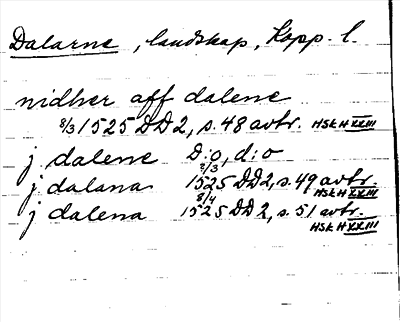 Dalarne, landskap, Kopp. l.
nidher aff dalene
8/3 1525 DD2, s. 48 avtr. HSH XXIII
j dalene D:o, d:o
j dalana 2/3 1525 DD2, s. 49 avtr. HSH XXIII
j dalena 8/4 1525 DD2, s. 51 avtr. HSH XXIII